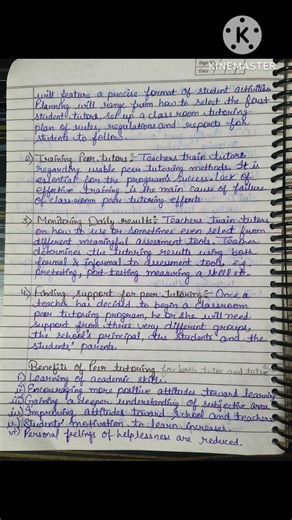 KINEMASTER
will feature a precise format of student activities.
Planning will range from how to select the first
student tutors, set up a class room tutoring
plan of rules, regulations and reports for
students to follow.
2) Training Peer tutors :- Teachers train tutors
regarding usable peer tutoring methods. It is
essential for the program's success, lack of
effective training is the main cause of failure
of classroom peer tutoring efforts.
3) Monitoring Daily results :- Teachers train tutors
on how to use or sometimes even select from
different meaningful assessment tools. Teacher
determines the tutoring results using both
formal & informal assessment tools, e.g.
pretesting, post-testing measuring a skill etc.
4) Finding support for peer tutoring :- Once a
teacher has decided to begin a classroom
peer tutoring program, he or she will need
support from three very different groups,
the school's principal, the students and the
students' parents.
Benefits of Peer tutoring for both tutor and tutee
i) Learning of academic skills.
ii) Encouraging more positive attitudes toward learning
iii) Gaining a deeper understanding of subjective areas
iv) Improving attitudes toward school and teachers
v) Students' motivation to learn increases.
vi) Personal feelings of helplessness are reduced.